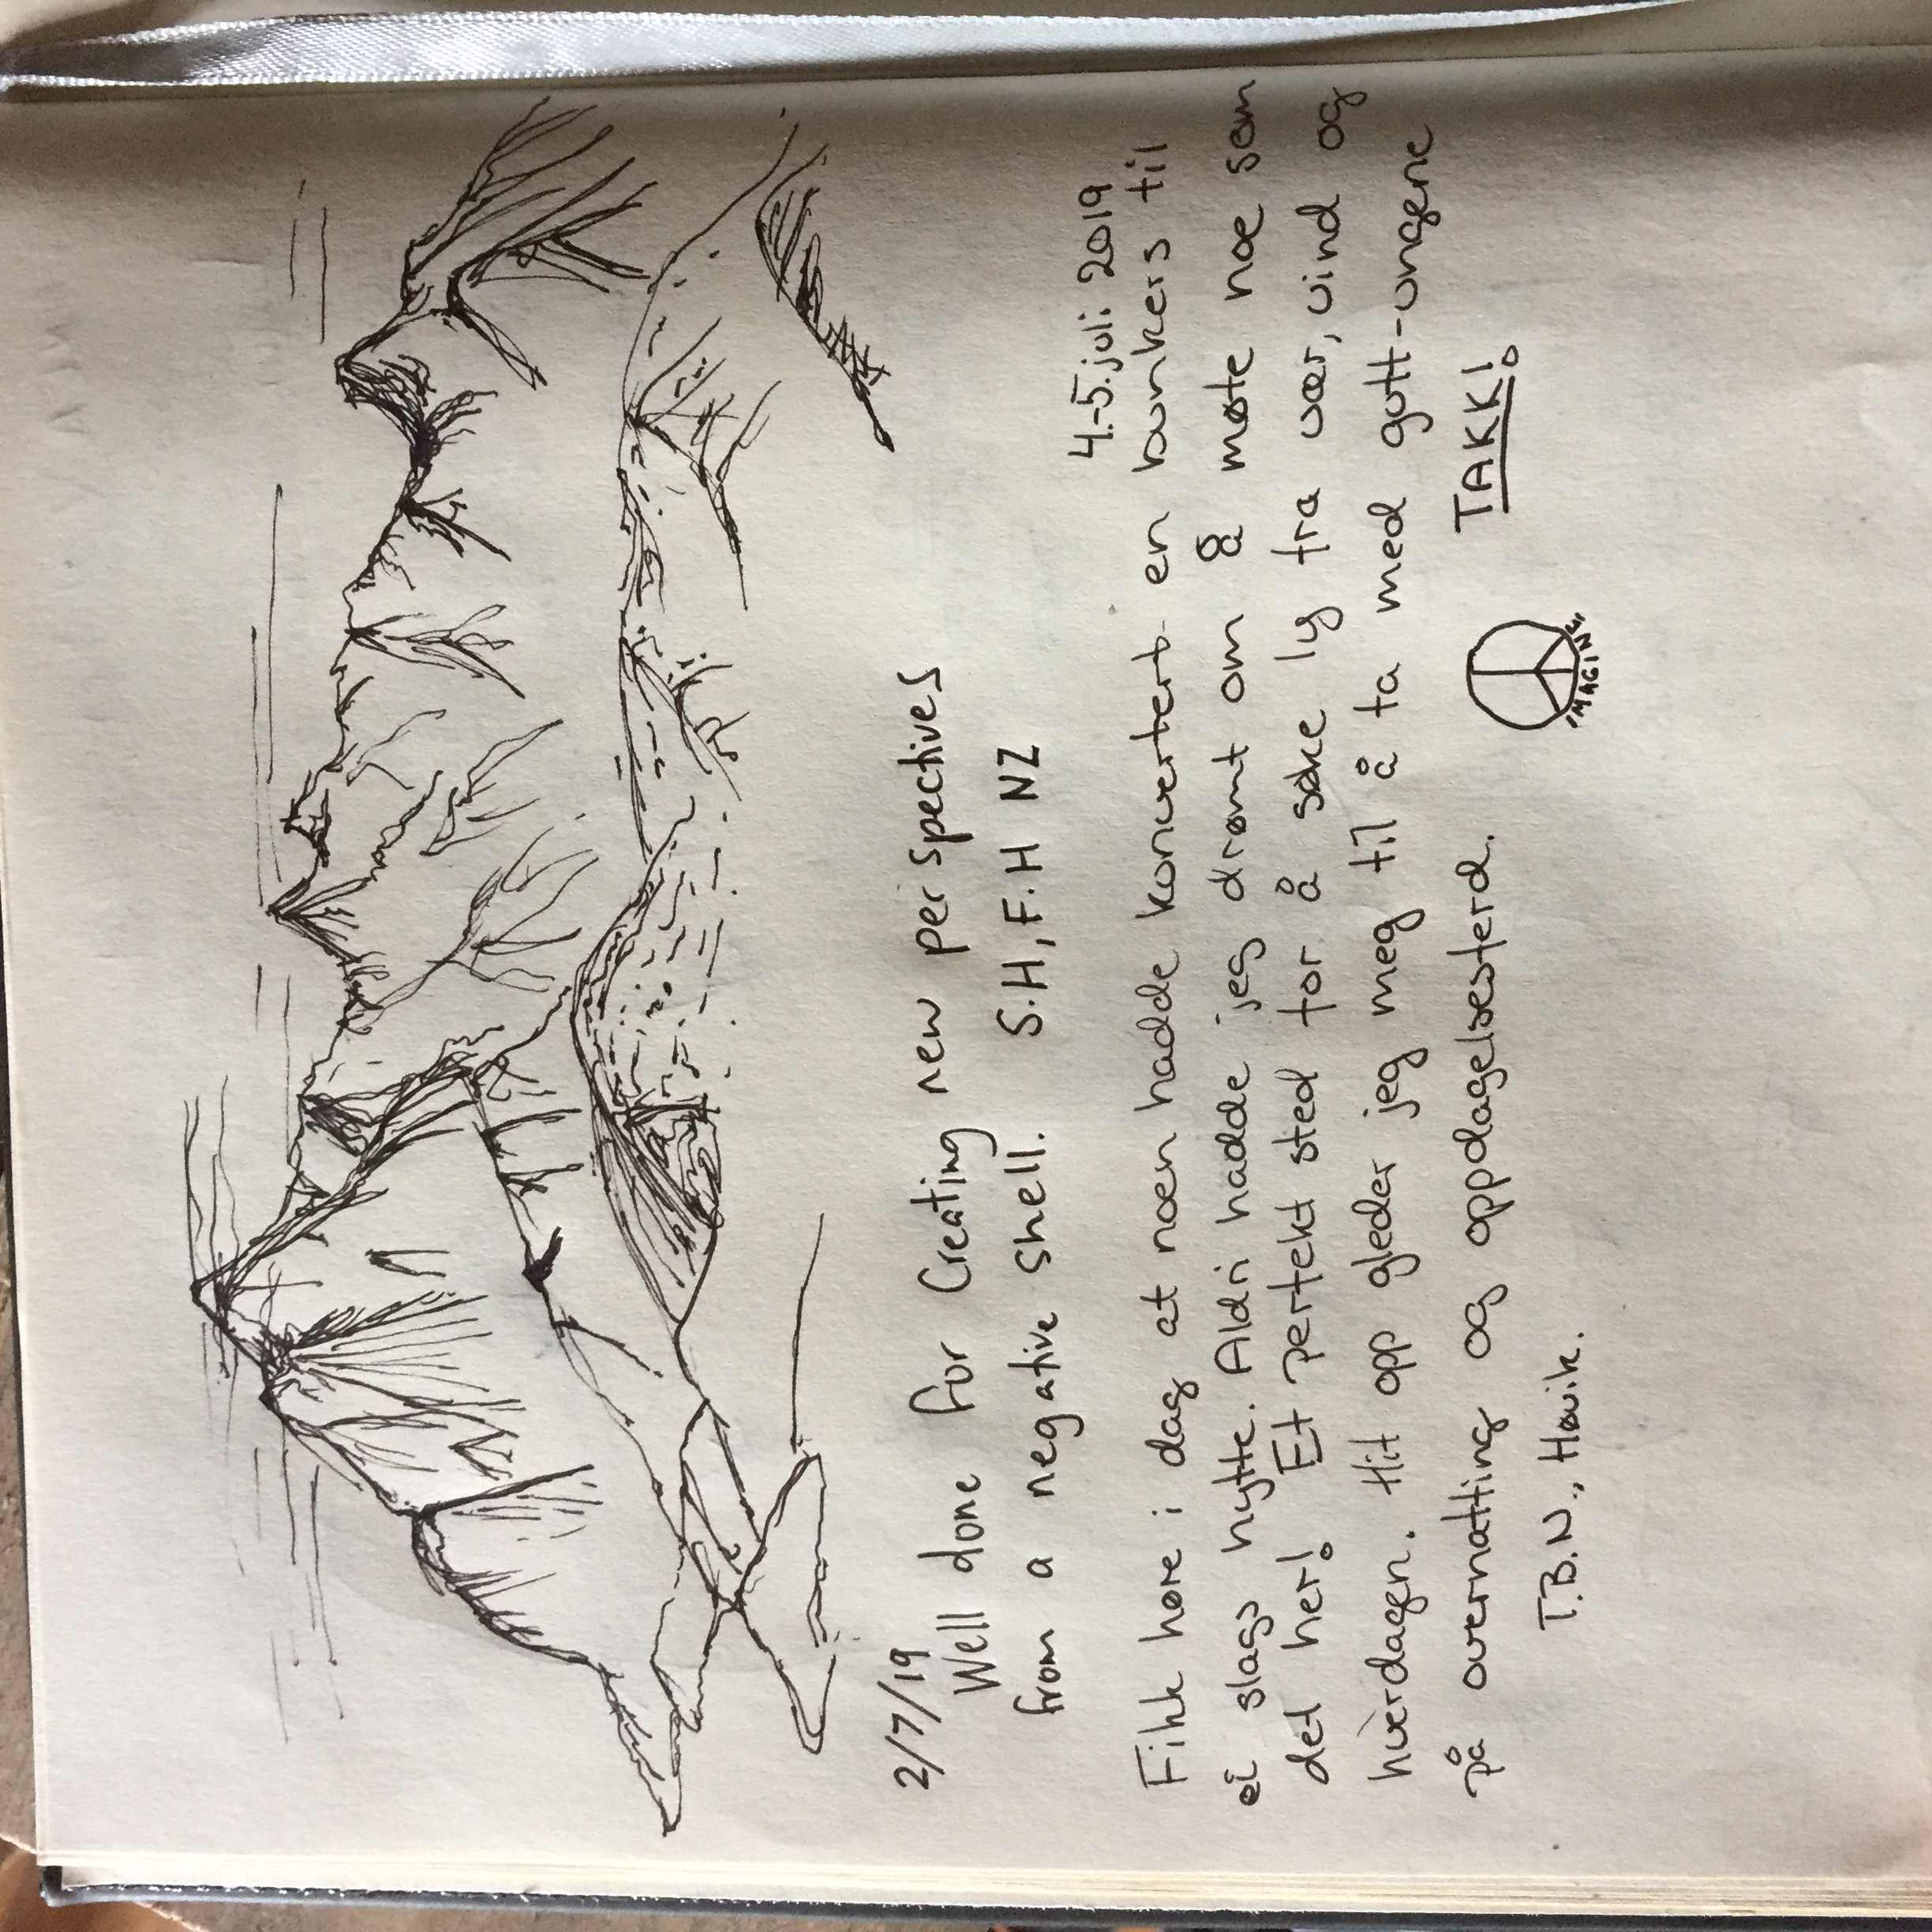 2/7/19
Well done for Creating new perspectives
from a negative shell. S.H, F.H NZ
4.-5. juli 2019
Fikk høre i dag at noen hadde konvertert en bunkers til
ei slags hytte. Aldri hadde jeg drømt om å møte noe som
det her! Et perfekt sted for å søke ly fra vær, vind og
hverdagen. Hit opp gleder jeg meg til å ta med gutt-ungene
på overnatting og oppdagelsesferd. TAKK!
T.B.N., Høvik.
IMAGINE